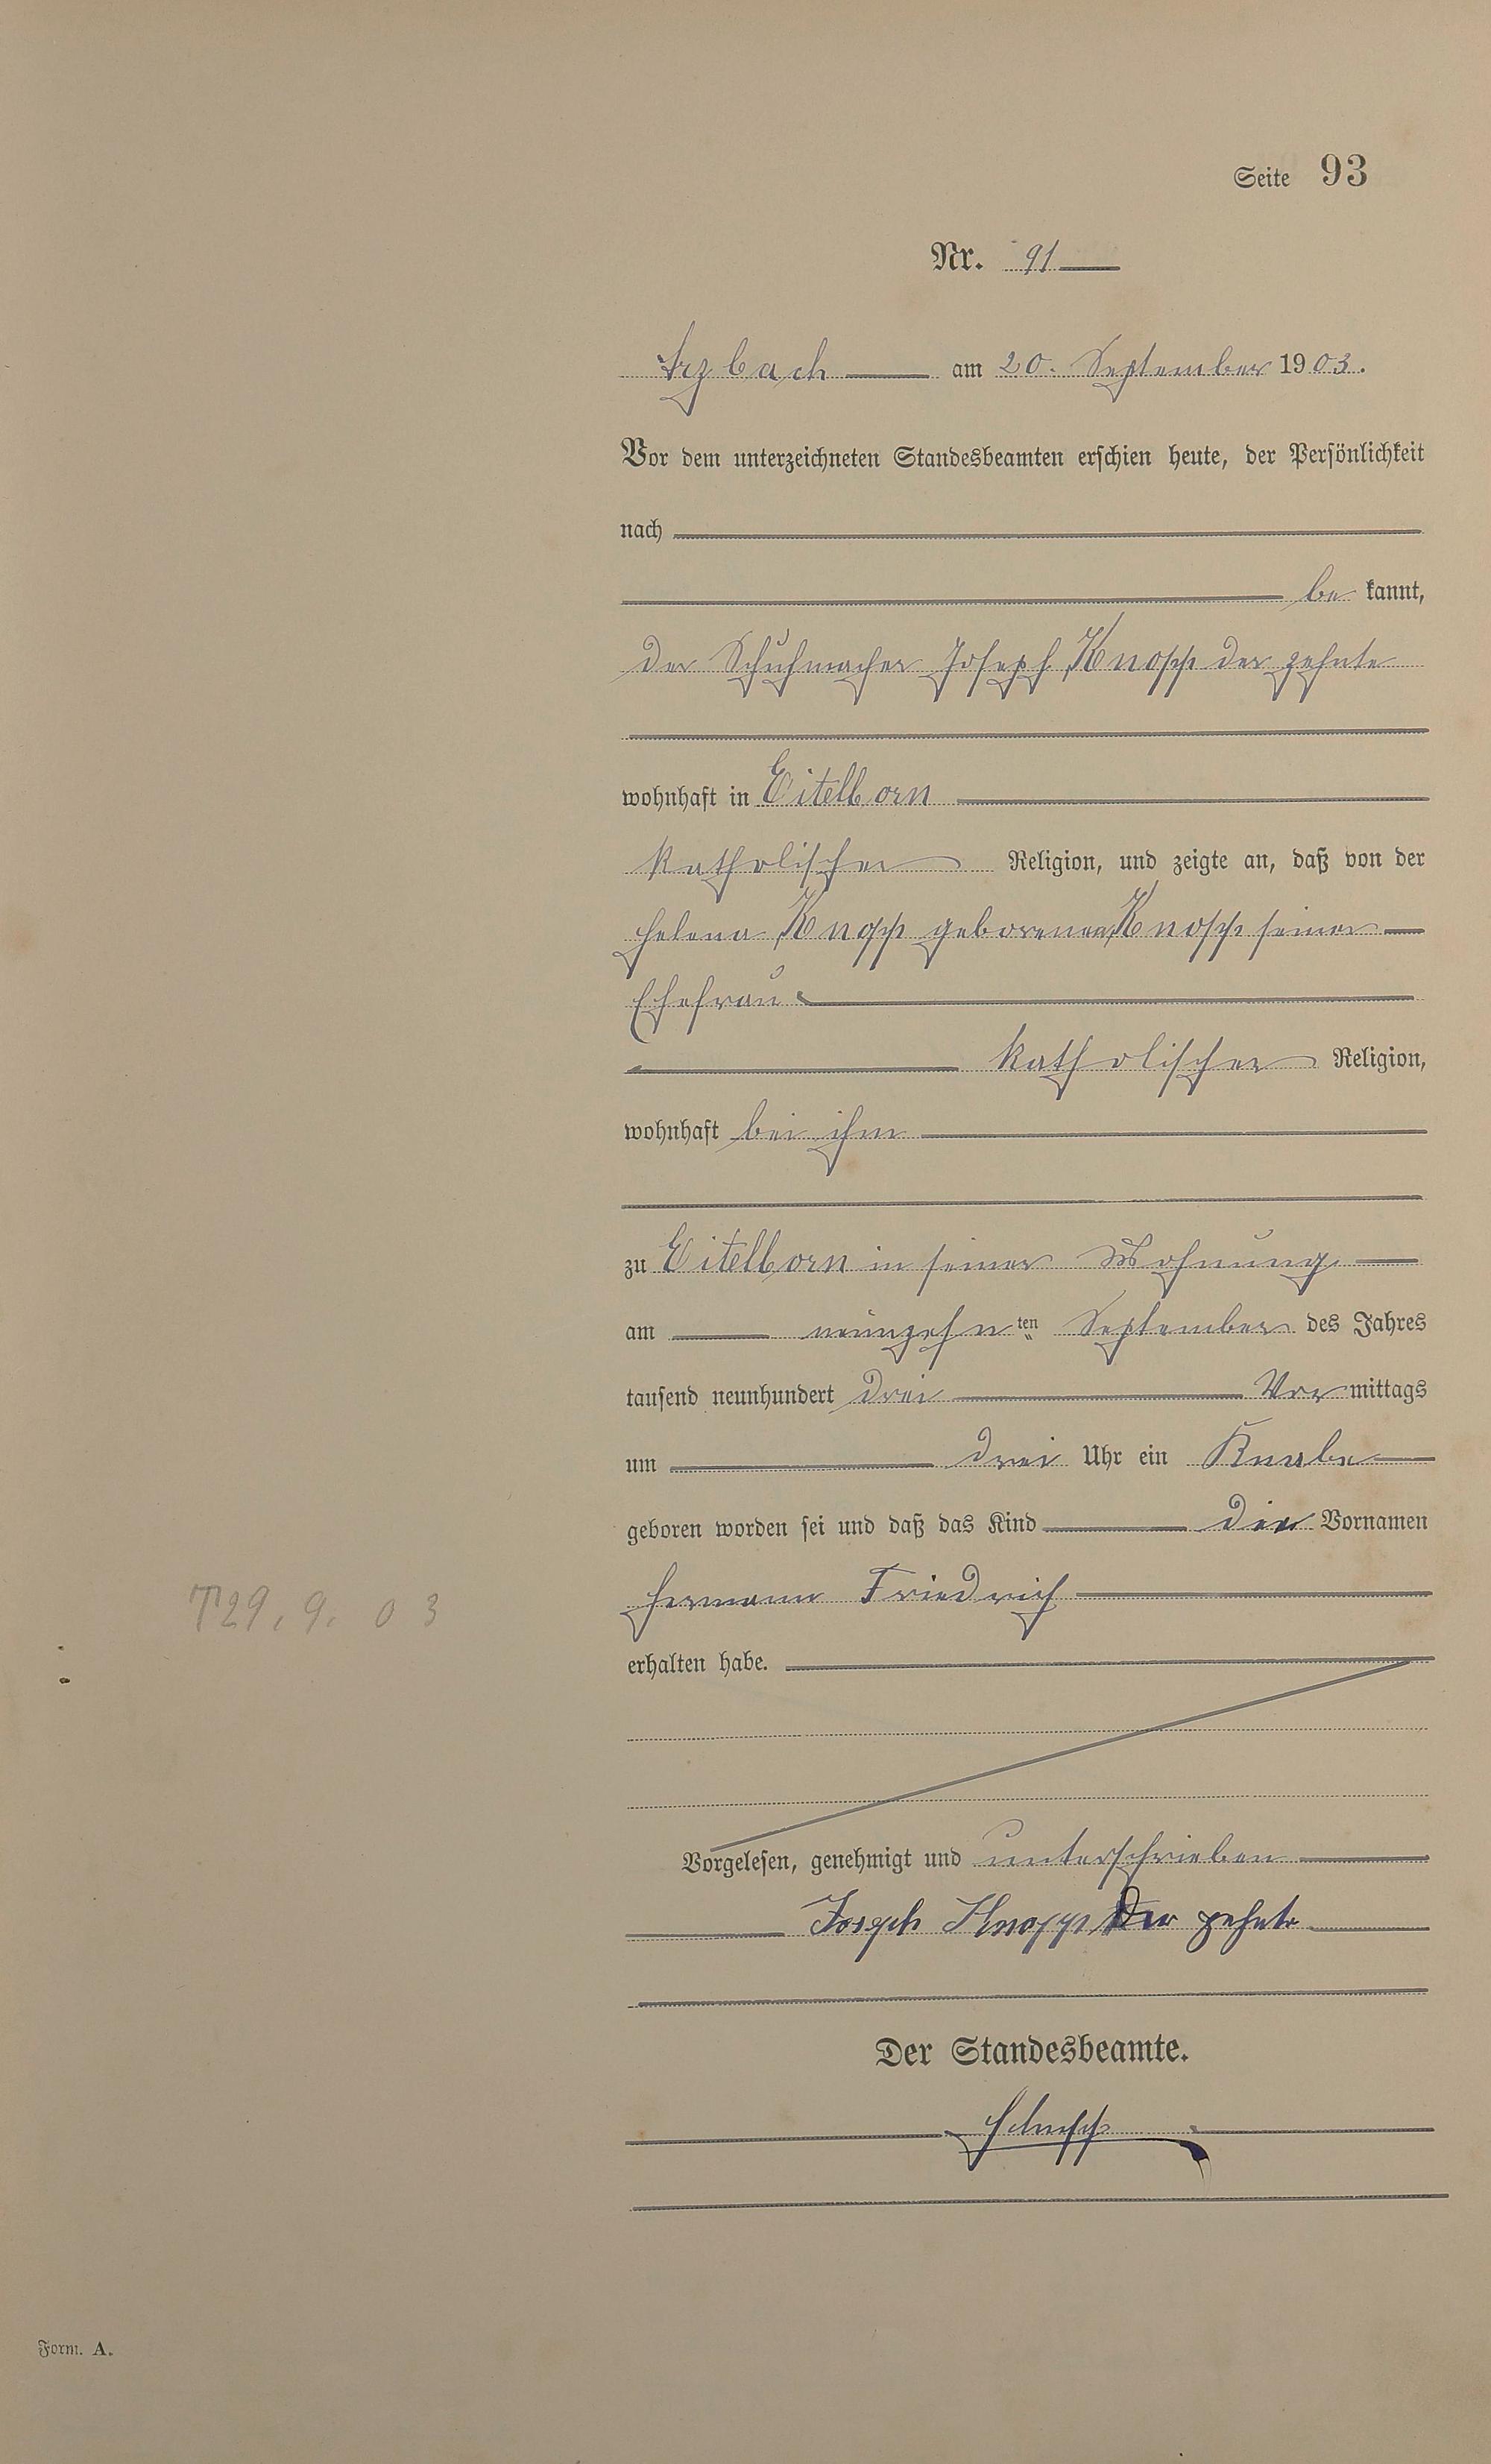 Seite 93
Nr. 91
Arzbach am 20. September 1903.
Vor dem unterzeichneten Standesbeamten erschien heute, der Persönlichkeit
nach
be kannt,
der Schuhmacher Joseph Knopp der zehnte
wohnhaft in Eitelborn
katholischer Religion, und zeigte an, daß von der
Helena Knopp geborenen Knopp seiner
Ehefrau
katholischer Religion,
wohnhaft bei ihm
zu Eitelborn in seiner Wohnung
am neunzehnten September des Jahres
tausend neunhundert drei Vormittags
um drei Uhr ein Knabe
geboren worden sei und daß das Kind die Vornamen
Hermann Friedrich
T 29. 9. 03
erhalten habe.
Vorgelesen, genehmigt und unterschrieben
Joseph Knopp der zehnte
Der Standesbeamte.
Form. A.